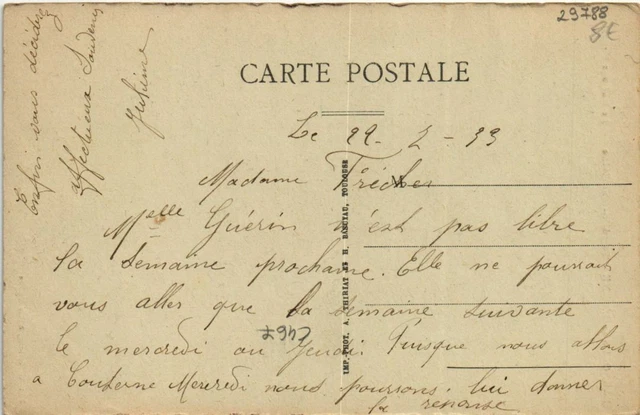 29788
8€
CARTE POSTALE
Le 22 - 2 - 33
Madame
M
Melle Guérin n'est pas libre
la semaine prochaine. Elle ne pourrait
vous aller que la semaine suivante
le mercredi ou jeudi Puisque nous allons
a Mercredi nous pourrons lui donner
la reponse
Enfin vous décidez
affectueux
IMP. PHOT. A. THIRIAT ET H. BASUYAU, TOULOUSE